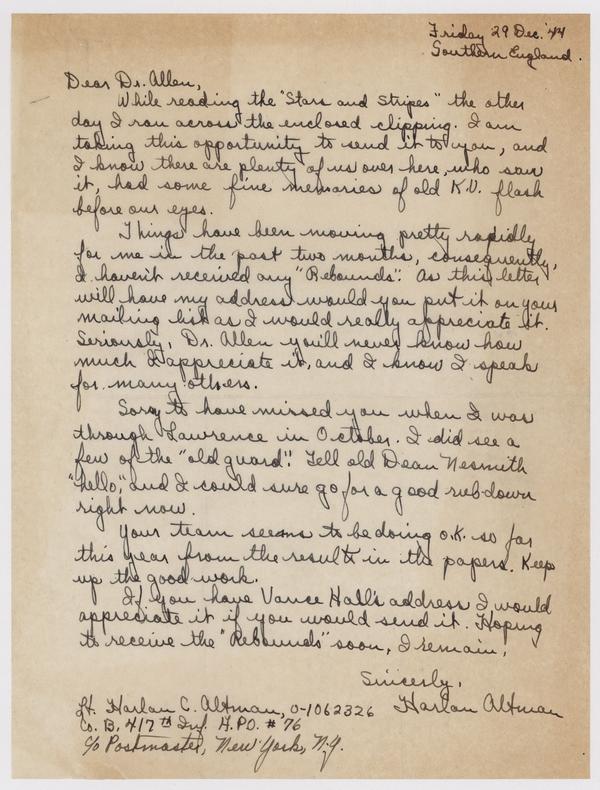 Friday 29 Dec. '44
Southern England.
Dear Dr. Allen,
While reading the "Stars and Stripes" the other
day I ran across the enclosed clipping. I am
taking this opportunity to send it to you, and
I know there are plenty of us over here, who saw
it, had some fine memories of old K.U. flash
before our eyes.
Things have been moving pretty rapidly
for me in the past two months, consequently,
I haven't received any "Rebounds". As this letter
will have my address would you put it on your
mailing list as I would really appreciate it.
Seriously, Dr. Allen you'll never know how
much I appreciate it, and I know I speak
for many others.
Sorry to have missed you when I was
through Lawrence in October. I did see a
few of the "old guard". Tell old Dean Nesmith
"hello," and I could sure go for a good rub-down
right now.
Your team seems to be doing o.k. so far
this year from the results in the papers. Keep
up the good work.
If you have Vance Hall's address I would
appreciate it if you would send it. Hoping
to receive the "Rebounds" soon, I remain,
Sincerely,
Harlan Altman
Lt. Harlan C. Altman, O-1062326
Co. B, 417th Inf. A.P.O. #76
c/o Postmaster, New York, N.Y.